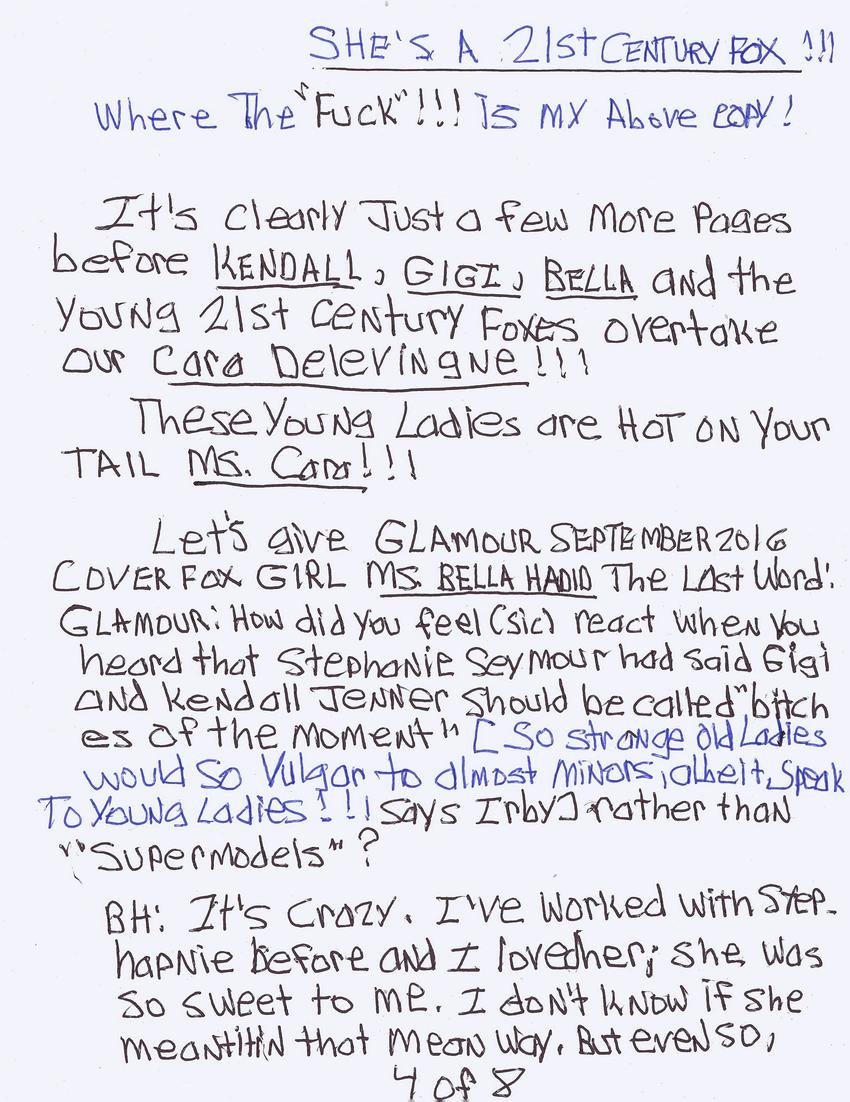 SHE'S A 21st CENTURY FOX !!!
Where The "Fuck"!!! Is my Above COPY!
It's clearly Just a few More Pages
before KENDALL, GIGI, BELLA and the
YOUNG 21st CENTURY Foxes overtake
our Cara DELEVINGNE!!!
These Young Ladies are HOT ON Your
TAIL MS. Cara!!!
Let's give GLAMOUR SEPTEMBER 2016
COVER FOX GIRL MS. BELLA HADID The Last Word:
GLAMOUR: How did you feel (sic) react when you
heard that Stephanie Seymour had said Gigi
and Kendall Jenner should be called "bitch
es of the moment" [So strange old Ladies
would so Vulgar to almost Minors, albeit, Speak
To Young Ladies!!! Says Irby] rather than
"Supermodels"?
BH: It's Crazy. I've worked with Step-
hapnie before and I loved her; she was
so sweet to me. I don't know if she
meant it in that mean way. But even so,
4 of 8